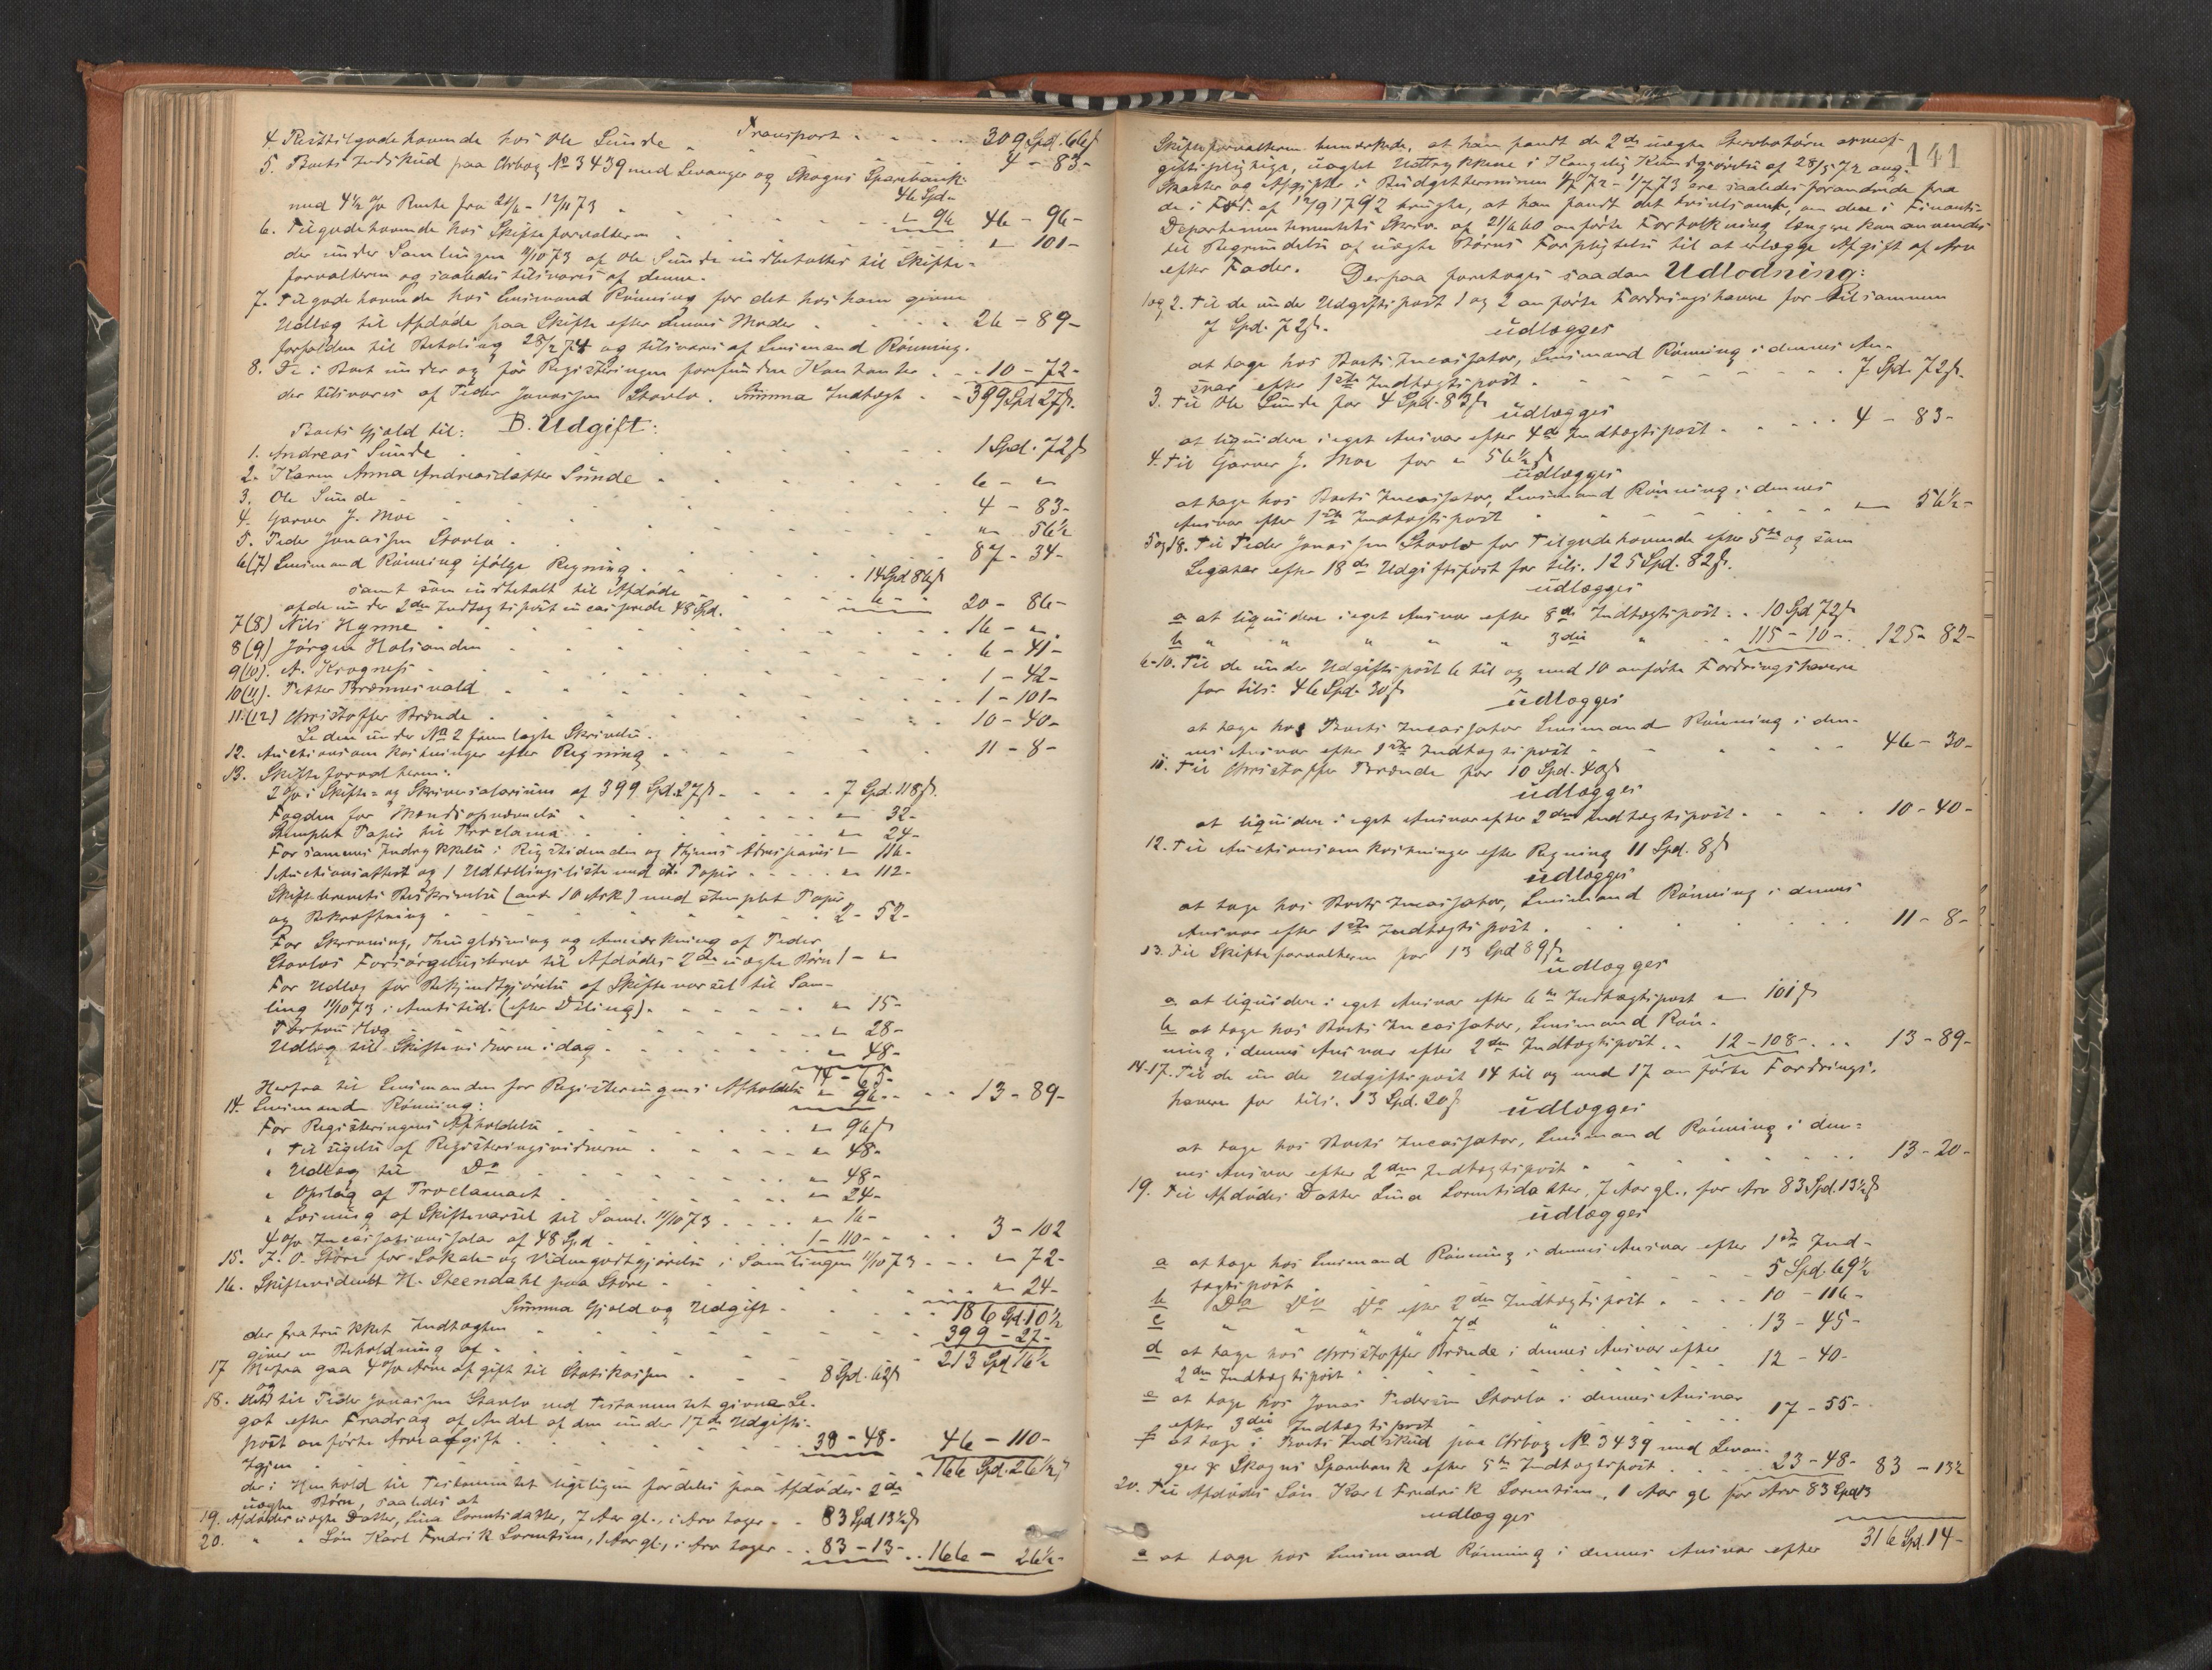 Transport - - - 309 Spd. 66ß
4. Resttilgodehavende hos Ole Sunde - - - 4 - 83 -
5. Boets Indskud paa Chrbog No 3439 med Levanger og Skogns Sparebank
46 Spd -
med 4½ % Rente fra 20/6 - 12/11 73 - - " 96 46 - 96 -
6. Tilgodehavende hos Skifteforvalteren - - - " 101 -
der under Samlingen 11/10 73 af Ole Sunde indbetaltes til Skifte-
forvalteren og saaledes tilsvares af denne.
7. Tilgodehavende hos Lensmand Rønning for det hos ham givne
Udlæg til Afdøde paa Skifte efter dennes Moder - - - 26 - 89 -
forfalden til Betaling 28/2 74 og tilsvares af Lensmand Rønning.
8. De i Boet under og før Registeringen forefundne Kontanter - - 10 - 72 -
der tilsvares af Peder Jonassen Stavlo. Summa Indtægt - - 399 Spd 27ß.
B. Udgift:
Boets Gjæld til:
1. Andreas Sunde - - - 1 Spd. 72ß
2. Karen Anna Andreasdatter Sunde - - - 6 - "
3. Ole Sunde - - - 4 - 83 -
4. Garver J. Moe - - - " 56½
5. Peder Jonassen Stavlo - - - 87 - 34 -
6(7) Lensmand Rønning ifølge Regning - - - 14 Spd 86ß
samt som indbetalt til Afdøde - - - 6 - " 20 - 86 -
af de under 2den Indtægtspost incasserede 48 Spd.
7(8) Nils Hynne - - - 16 - "
8(9) Jørgen Halsanden - - - 6 - 41 -
9(10). A. Krogness - - - 1 - 42 -
10(11). Petter Bremnesvald - - - 1 - 101 -
11.(12) Christoffer Brende - - - 10 - 40 -
Se den under No 2 fremlagte Skrivelse.
12. Auctionsomkostninger efter Regning - - - 11 - 8 -
13. Skifteforvalteren:
2 % i Skifte- og Skriversalarium af 399 Spd. 27ß - - - 7 Spd. 118ß.
Fogden for Mændsopnævnelse - - - " 32 -
Stemplet Papir til Proclama - - - " 24 -
For sammes Indrykkelse i Rigstidenden og Thjems Adresseavis " 116 -
1 Auctionsattest og 1 Udtællingsliste med st. Papir - - - " 112 -
Skiftebrevets Beskrivelse (ant. 10 Ark) med stemplet Papir
og Bekræftning - - - 2 - 52 -
For Skrivning, Thinglæsning og Anmærkning af Peder
Stavlos Forsørgelsesbrev til Afdødes 2de uægte Børn 1 - "
For Udlæg for Bekjendtgjørelse af Skiftevarsel til Sam-
ling 11/10 73 i Amtstid. (efter Deling) - - - " 15 -
Portoudlæg - - - " 28 -
Udlæg til Skiftevidnerne i dag - - - " 48 -
14 - 65 -
Herfra til Lensmanden for Registeringens Afholdelse " 96 - - - 13 - 89 -
14. Lensmand Rønning:
For Registeringens Afholdelse - - - " 96ß
" Tilsigelse af Registeringsvidnerne - - - " 48 -
" Udlæg til Do - - - " 48 -
" Opslag af Proclamaet - - - " 24 -
" Læsning af Skiftevarsel til Saml. 11/10 73 - - - " 16 -
4 % Incassationssalar af 48 Spd - - - 1 - 110 - - - 3 - 102
15. J. O. Støre for Lokale- og Vidnegodtgjørelse i Samlingen 11/10 73 - - - " 72 -
16. Skiftevidnet H. Steendahl paa Støre - - - " 24 -
Summa Gjæld og Udgift - - - 186 Spd. 10½
der fratrukket Indtægten - - - 399 - 27 -
giver en Beholdning af - - - 213 Spd 16½
17 Herfra gaa 4 % Arveafgift til Statskassen - - - 8 Spd. 62ß
og
18. det til Peder Jonassen Stavlo ved Testamentet givne Le-
gat efter Fradrag af Andel af den under 17de Udgifts-
post anførte Arveafgift - - - 38 - 48 - 46 - 110 -
Igjen - - - 166 Spd. 26½ß
der i Henhold til Testamentet ligeligen fordeles paa Afdødes 2de
uægte Børn, saaledes at
19. Afdødes uægte Datter, Lina Lorentsdatter, 7 Aar gl., i Arv tager - - 83 Spd 13½ß
20. " " Søn Karl Fredrik Lorentsen, 1 Aar gl., i Arv tager - - 83 - 13 - - 166 - 26½ -
141
Skifteforvalteren bemærkede, at han fandt de 2de uægte Stervbobørn arveaf-
giftspligtige, uagtet Udtrykkene i Kongelig Kundgjørelse af 28/5 72 ang.
Skatter og Afgifter i Budgetterminen 1/7 72 - 1/7 73 ere saaledes forandrede fra
de i Frd. af 12/9 1792 brugte, at han fandt det tvivlsomt, om den i Finants-
Departementets Skriv. af 21/6 60 anførte Fortolkning længere kan anvendes
til Begrundelse af uægte Børns Forpligtelse til at erlægge Afgift af Arv
efter Fader. Derpaa foretoges saadan Udlodning:
1 og 2. Til de under Udgiftspost 1 og 2 anførte Fordringshavere for tilsammen
7 Spd. 72ß. udlægges
at tage hos Boets Incassator, Lensmand Rønning i dennes An-
svar efter 1ste Indtægtspost - - - 7 Spd. 72ß.
3. Til Ole Sunde for 4 Spd. 83ß udlægges
at liquidere i eget Ansvar efter 4de Indtægtspost - - - 4 - 83 -
4. Til Garver J. Moe for " 56½ß
udlægges
at tage hos Boets Incassator, Lensmand Rønning i dennes
Ansvar efter 1ste Indtægtspost - - - " 56½ -
5 og 18. Til Peder Jonassen Stavlo for Tilgodehavende efter 5te og som
Legatar efter 18de Udgiftspost for tils. 125 Spd. 82ß.
udlægges
a at liquidere i eget Ansvar efter 8de Indtægtspost - - 10 Spd 72ß
b " " " " " 3die " - 115 - 10 - 125 - 82 -
6-10. Til de under Udgiftspost 6 til og med 10 anførte Fordringshavere
for tils. 46 Spd. 30ß udlægges
at tage hos Boets Incassator Lensmand Rønning i den-
nes Ansvar efter 1ste Indtægtspost - - - 46 - 30 -
11. Til Christoffer Brende for 10 Spd. 40ß
udlægges
at liquidere i eget Ansvar efter 2den Indtægtspost - - - 10 - 40 -
12. Til Auctionsomkostninger efter Regning 11 Spd. 8ß
udlægges
at tage hos Boets Incassator, Lensmand Rønning i dennes
Ansvar efter 1ste Indtægtspost - - - 11 - 8 -
13. Til Skifteforvalteren for 13 Spd 89ß
udlægges
a at liquidere i eget Ansvar efter 6te Indtægtspost " 101ß
b at tage hos Boets Incassator, Lensmand Røn-
ning i dennes Ansvar efter 2den Indtægtspost - - 12 - 108 - - - 13 - 89 -
14-17. Til de under Udgiftspost 14 til og med 17 anførte Fordrings-
havere for tils. 13 Spd. 20ß udlægges
at tage hos Boets Incassator, Lensmand Rønning i den-
nes Ansvar efter 2den Indtægtspost - - - 13 - 20 -
19. Til Afdødes Datter Lina Lorentsdatter, 7 Aar gl., for Arv 83 Spd. 13½ß
udlægges
a at tage hos Lensmand Rønning i dennes Ansvar efter 1ste Ind-
tægtspost - - - 5 Spd. 69½
b Do Do Do efter 2den Indtægtspost - - - 10 - 116 -
c " " " " 7d " - - - 13 - 45 -
d at tage hos Christoffer Brende i dennes Ansvar efter
2den Indtægtspost - - - 12 - 40 -
e at tage hos Jonas Pedersen Stavlo i dennes Ansvar
efter 3die Indtægtspost - - - 17 - 55 -
f at tage i Boets Indskud paa Chrbog No 3439 med Levan-
ger & Skogns Sparebank efter 5te Indtægtspost - - - 23 - 48 - 83 - 13½
20. Til Afdødes Søn Karl Fredrik Lorentsen, 1 Aar gl. for Arv 83 Spd 13
udlægges
316 Spd. 14 -
a at tage hos Lensmand Rønning i dennes Ansvar efter